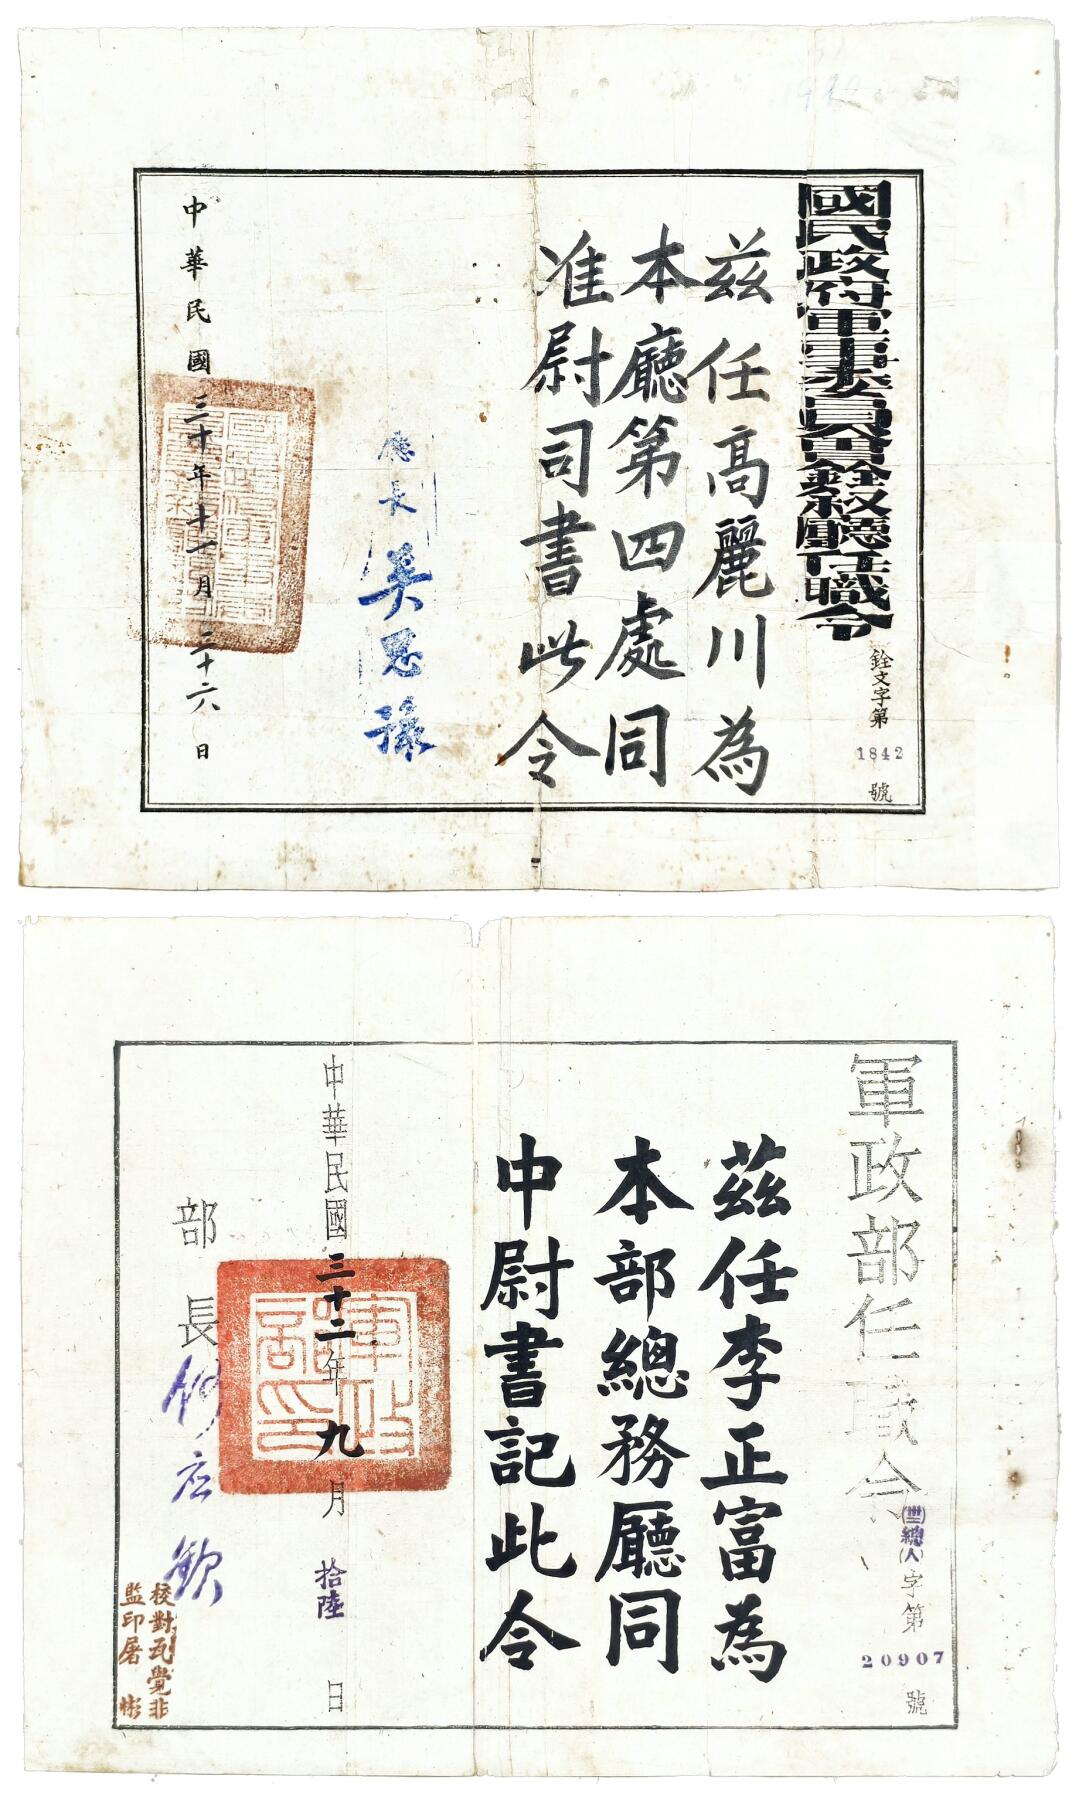 國民政府軍事委員會銓敘廳任職令
銓文字第1842號
茲任高麗川為
本廳第四處同
准尉司書此令
廳長 吳思豫
中華民國三十年十一月二十六日
軍政部任職令
總人字第20907號
茲任李正富為
本部總務廳同
中尉書記此令
中華民國三十二年九月拾陸日
軍政部印
部長 何应欽
校對瓦覺非
監印屠彬